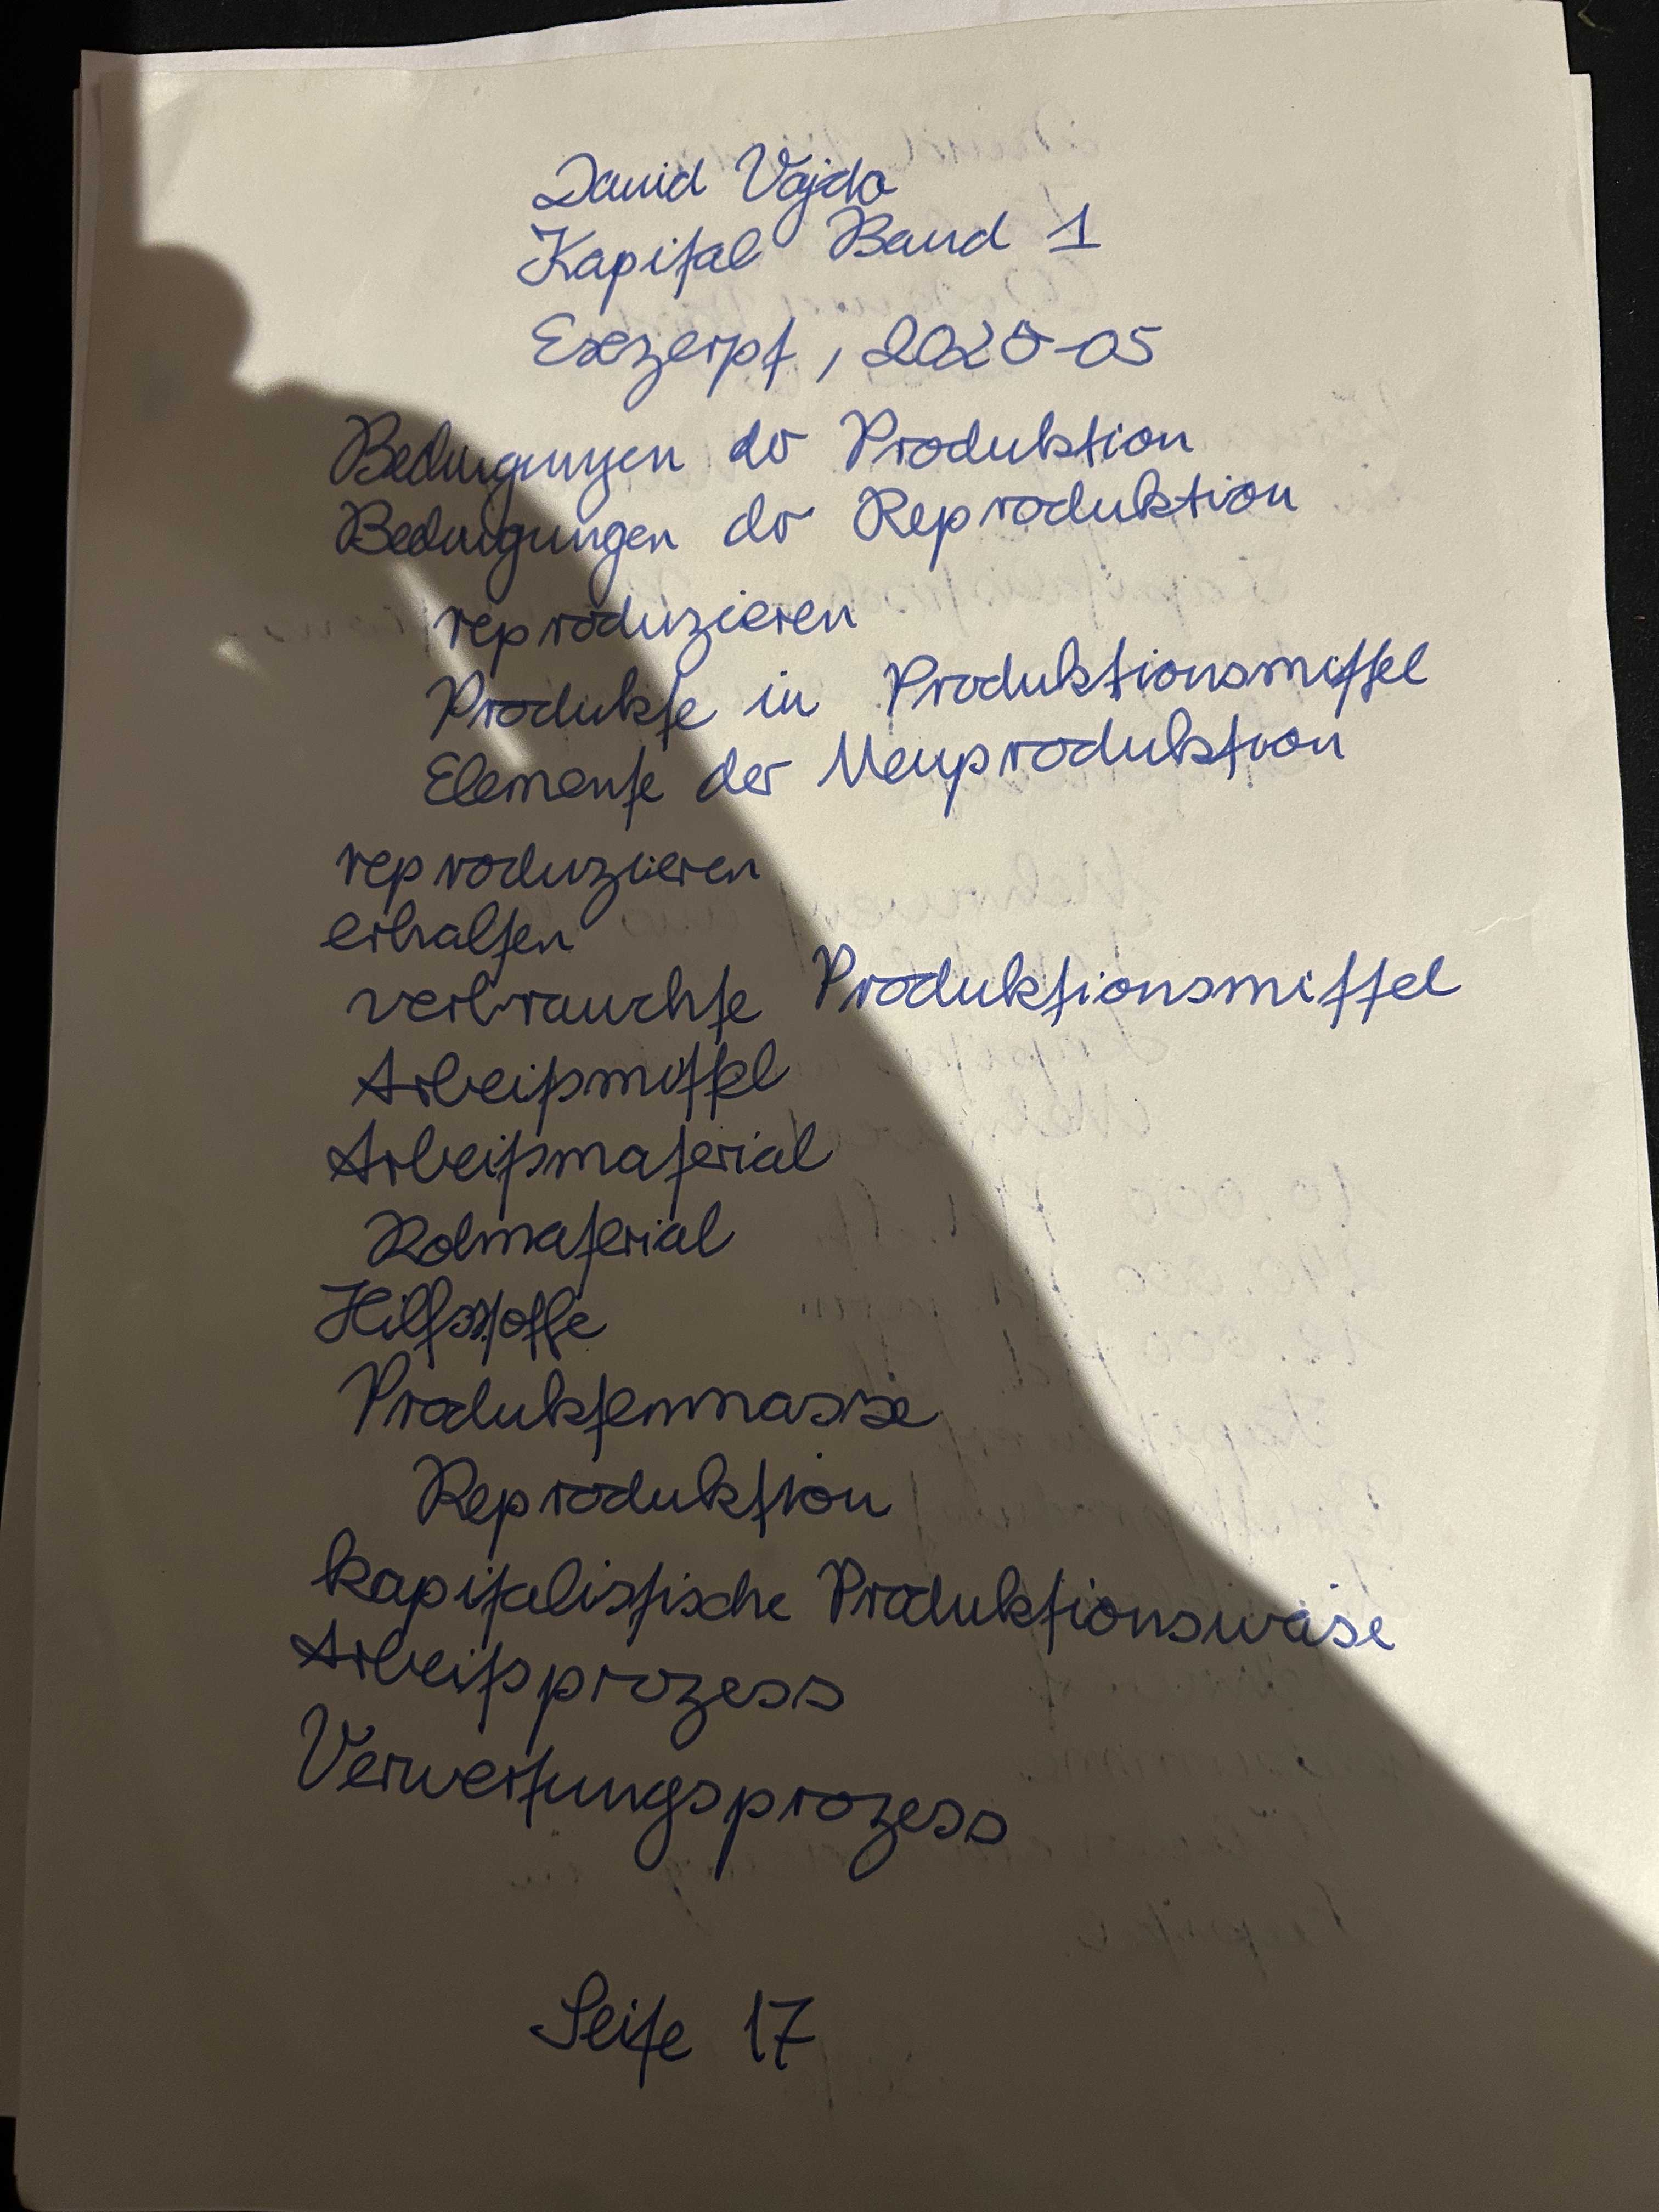 David Vajda
Kapital Band 1
Exzerpt, 2025-05
Bedingungen der Produktion
Bedingungen der Reproduktion
reproduzieren
Produkte in Produktionsmittel
Elemente der Neuproduktion
reproduzieren
erhalten
verbrauchte Produktionsmittel
Arbeitsmittel
Arbeitsmaterial
Rohmaterial
Hilfsstoffe
Produktenmasse
Reproduktion
kapitalistische Produktionsweise
Arbeitsprozess
Verwertungsprozess
Seite 17